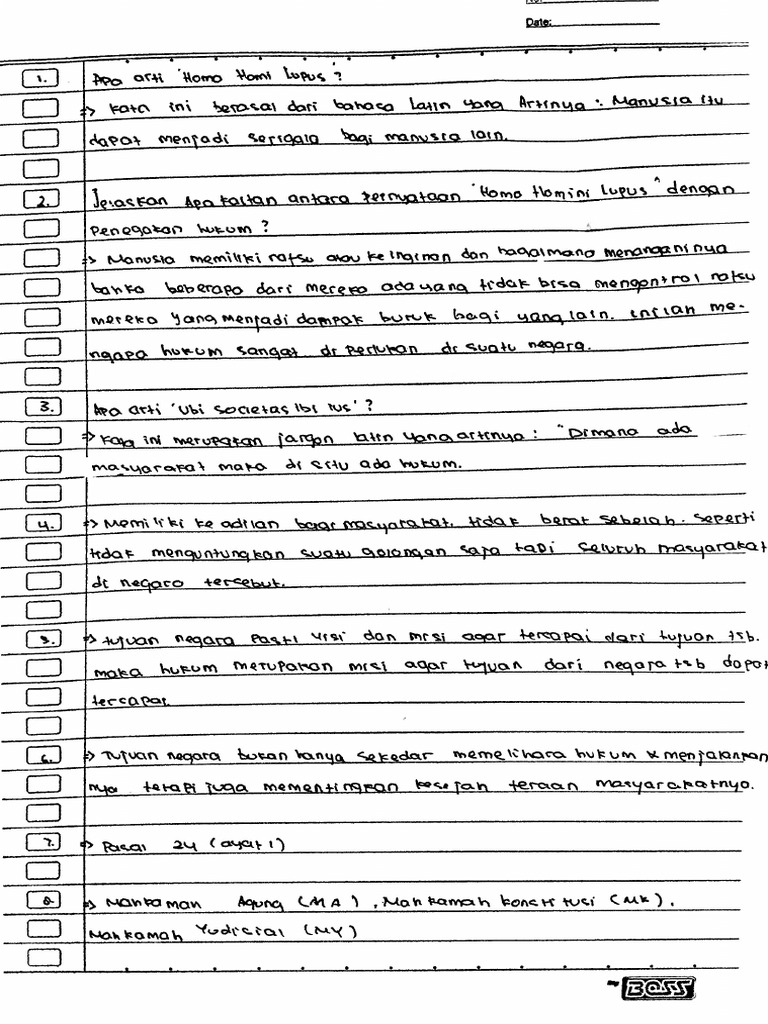 No:
Date:
1. Apa arti 'Homo Homi Lupus'?
=> Kata ini berasal dari bahasa latin yang Artinya : Manusia itu
dapat menjadi serigala bagi manusia lain.
2. Jelaskan Apa kaitan antara Pernyataan "Homo Homini Lupus" dengan
Penegakan hukum?
=> Manusia memiliki nafsu atau keinginan dan bagaimana menanganinya
banka beberapa dari mereka ada yang tidak bisa mengontrol nafsu
mereka yang menjadi dampak buruk bagi yang lain. Inilah me-
ngapa hukum sangat di perlukan di suatu negara.
3. Apa arti 'Ubi societas Ibi Ius'?
=> Kata ini merupakan jargon latin yang artinya : "Dimana ada
masyarakat maka di situ ada hukum.
4. => Memiliki ke adilan bagi masyarakat. tidak berat sebelah. seperti
tidak menguntungkan suatu golongan saja tapi seluruh masyarakat
di negara tersebut.
5. => tujuan negara Pasti visi dan misi agar tercapai dari tujuan tsb.
maka hukum merupakan misi agar tujuan dari negara tsb dapat
tercapai
6. => Tujuan negara bukan hanya sekedar memelihara hukum & menjalankan
nya tetapi juga mementingkan kesejah teraan masyarakatnya.
7. => Pasal 24 (ayat 1)
8. => Mahkamah Agung (MA), Mahkamah konstitusi (MK),
Mahkamah Yudicial (MY)
BOSS